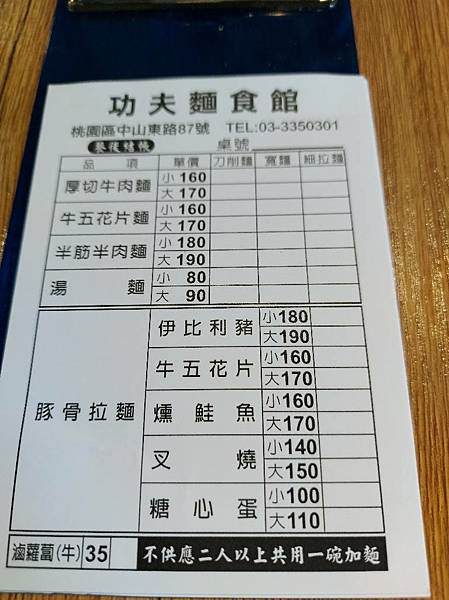 功夫麵食館
桃園區中山東路87號 TEL:03-3350301
餐後結帳 桌號
品項 單價 刀削麵 寬麵 細拉麵
厚切牛肉麵 小 160
大 170
牛五花片麵 小 160
大 170
半筋半肉麵 小 180
大 190
湯麵 小 80
大 90
豚骨拉麵
伊比利豬 小180
大190
牛五花片 小160
大170
燻鮭魚 小160
大170
叉燒 小140
大150
糖心蛋 小100
大110
滷蘿蔔(牛) 35 不供應二人以上共用一碗加麵